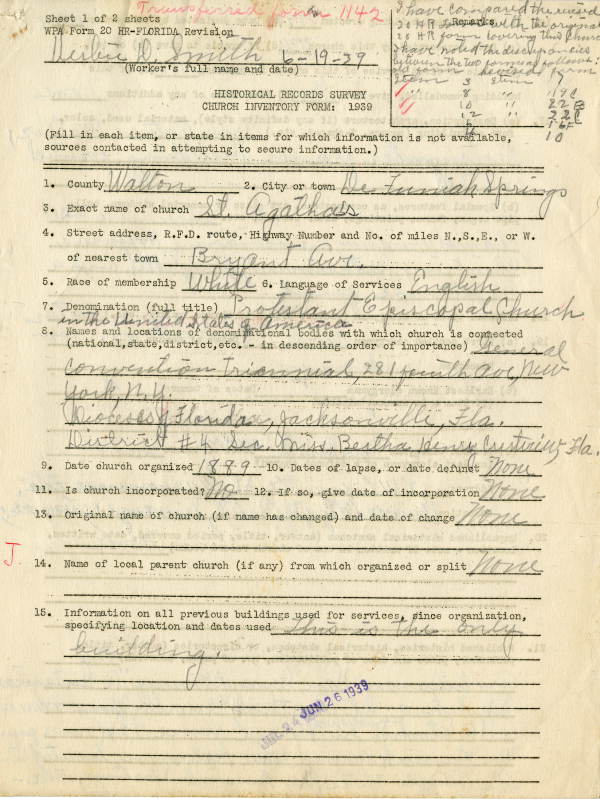 Transferred form 1142
Sheet 1 of 2 sheets
WPA Form 20 HR-FLORIDA Revision
D. Smith 6-19-39
(Worker's full name and date)
Remarks
I have compared the revised
20 HR form with the original
20 HR form covering this church
I have noted the discrepancies
between the two forms as follows:
old form revised form
Item 3 Item 7
8 " 19
10 " 22
12 " 22
16
10
HISTORICAL RECORDS SURVEY
CHURCH INVENTORY FORM: 1939
(Fill in each item, or state in items for which information is not available,
sources contacted in attempting to secure information.)
1. County Walton 2. City or town De Funiak Springs
3. Exact name of church St. Agatha's
4. Street address, R.F.D. route, Highway Number and No. of miles N.,S.,E., or W.
of nearest town Bryant Ave.
5. Race of membership White 6. Language of Services English
7. Denomination (full title) Protestant Episcopal Church
in the United States of America
8. Names and locations of denominational bodies with which church is connected
(national,state,district,etc. - in descending order of importance) General
Convention Triennial, 281 fourth Ave, New
York, N.Y.
Diocese of Florida, Jacksonville, Fla.
District #4 Sec. Miss. Bertha Henry Crestview, Fla.
9. Date church organized 1889 10. Dates of lapse, or date defunct None
11. Is church incorporated? No 12. If so, give date of incorporation None
13. Original name of church (if name has changed) and date of change None
J.
14. Name of local parent church (if any) from which organized or split None
15. Information on all previous buildings used for services, since organization,
specifying location and dates used This is the only
building.
JUN 26 1939